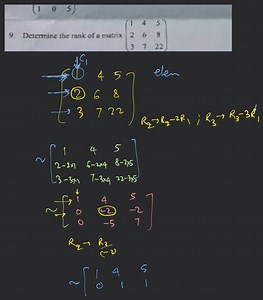 (1 0 5)
9. Determine the rank of a matrix (1 4 5
2 6 8
3 7 22)
C1
1 4 5 elem
2 6 8
3 7 22
R2→R2-2R1 ; R3→R3-3R1
~ [1 4 5
2-2×1 6-2×4 8-2×5
3-3×1 7-3×4 22-3×5]
~ [1 4 5
0 -2 -2
0 -5 7]
R2→ R2/(-2)
~ [1 4 5
0 1 1